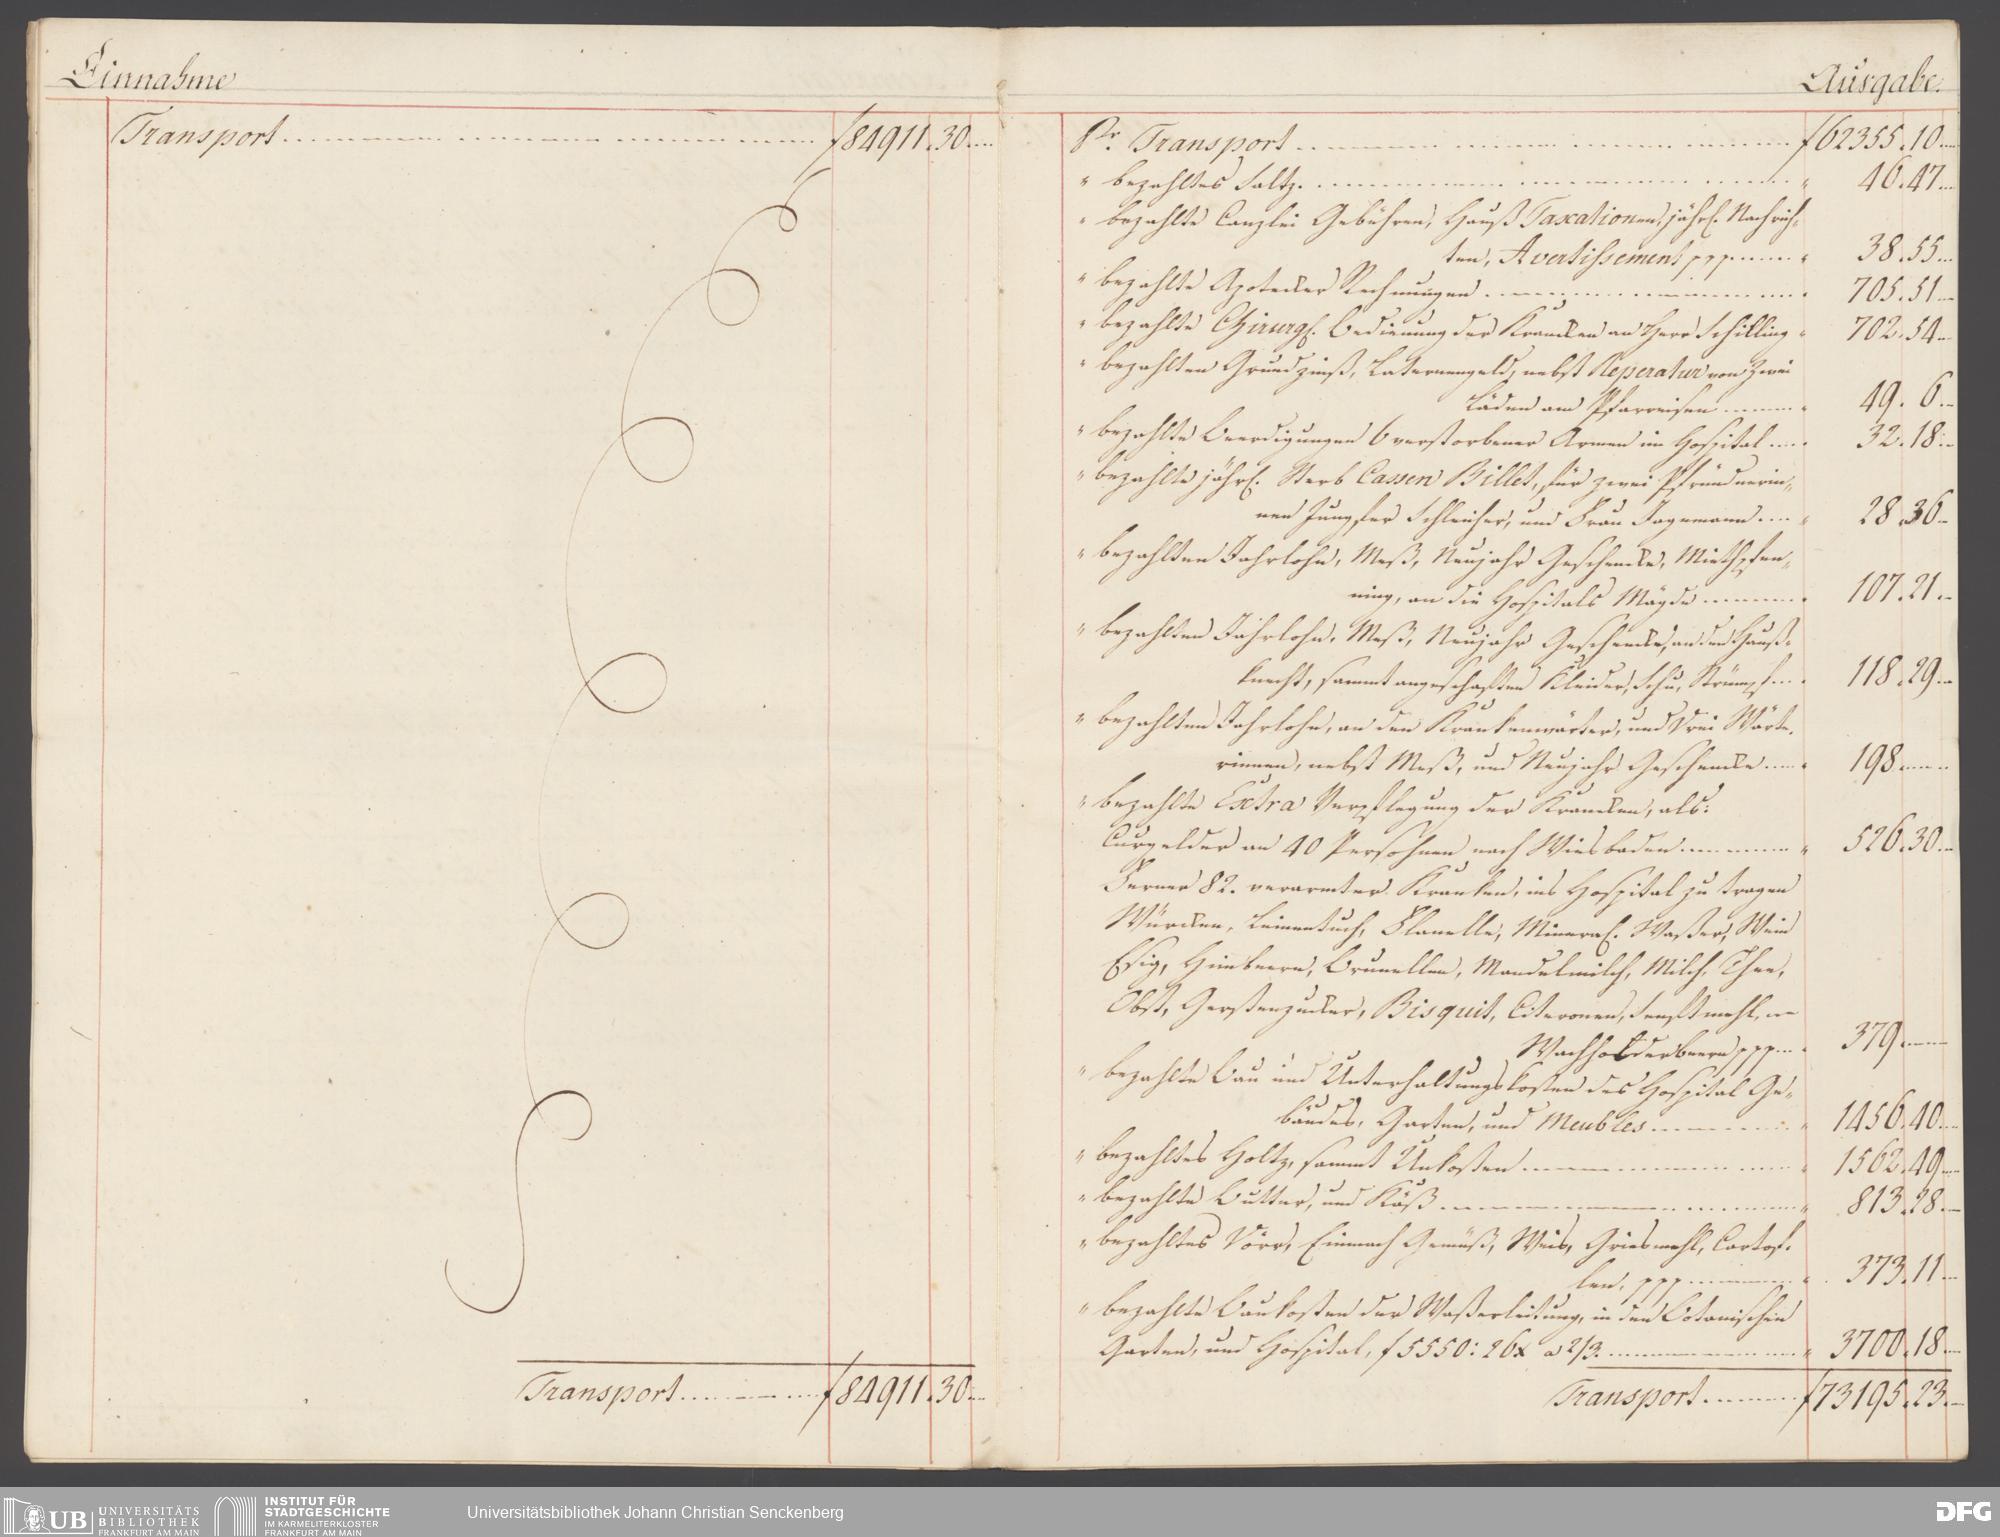 Einnahme
Transport f 84911.30
Transport f 84911.30
Ausgabe.
Pr. Transport f 62355.10
" bezahltes Saltz. " 46.47
" bezahlte Canzlei Gebühren, Hauß Taxationen, jährl. Nachrich-
ten, Avertissement ppp " 38.55
" bezahlte Apotecker Rechnungen " 705.51
" bezahlte Chirurg. Bedienung der Krancken an Herr Schilling " 702.54
" bezahlten Grundzinß, Laternengeld, nebst Reperatur von zwei
Läden am Pfarreisen " 49.6
" bezahlte Beerdigungen 6 verstorbener Armen im Hospital " 32.18
" bezahlte jährl. Sterb Cassen Billet, für zwei Pfründnerin-
nen Jungfer Schleicher, und Frau Jagemann " 28.36
" bezahlten Jahrlohn, Meß, Neujahr Geschencke, Miethpfen-
ning, an die Hospitals Mägde " 107.21
" bezahlten Jahrlohn, Meß, Neujahr Geschencke, an den Hauß-
knecht, sammt angeschaften Kleider, Schu, Strümpf " 118.29
" bezahlten Jahrlohn, an den Krankenwärter, und drei Wärte-
rinnen, nebst Meß, und Neujahr Geschencke " 198
" bezahlte Extra Verpflegung der Krancken, als:
Curgelder an 40 Persohnen nach Wiesbaden " 526.30
Ferner 82. verarmter Kranken, ins Hospital zu tragen
Würcken, Leinentuch, Flanelle, Mineral. Waßer, Wein
Eßig, Himbeern, Brunellen, Mandelmilch, Milch, Thee,
Obst, Gerstenzucker, Bisquit, Citeronen, Senftmehl,
Wachholderbeern ppp " 379
" bezahlte Bau und Unterhaltungskosten des Hospital Ge-
bäudes, Garten, und Meubles " 1456.40
" bezahltes Holtz, sammt Unkosten " 1562.49
" bezahlte Butter, und Käß " 813.28
" bezahltes Dörr, Einmach Gemüß, Weis, Griesmehl, Cartof-
len, ppp " 373.11
" bezahlte Baukosten der Waßerleitung, in den Botanischen
Garten, und Hospital, f 5550: 26x a 2/3. " 3700.18
Transport f 73195.23
UB UNIVERSITÄTS
BIBLIOTHEK
FRANKFURT AM MAIN
INSTITUT FÜR
STADTGESCHICHTE
IM KARMELITERKLOSTER
FRANKFURT AM MAIN
Universitätsbibliothek Johann Christian Senckenberg
DFG